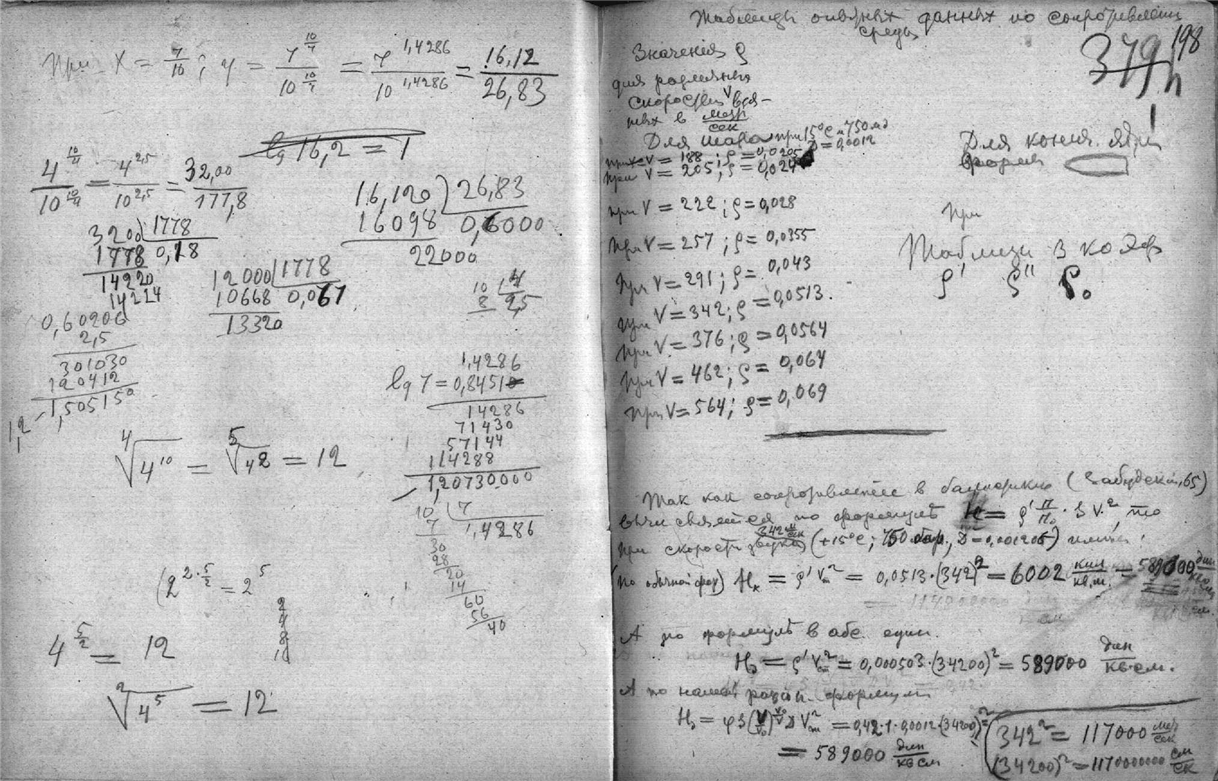 при x = 7/10; y = 7^{10/7} / 10^{10/7} = 7^{1,4286} / 10^{1,4286} = 16,12 / 26,83
lg 16,2 = 1
4^{10/4} / 10^{10/4} = 4^{2,5} / 10^{2,5} = 32,00 / 177,8
3200 | 1778
1778 0,18
14220
14224
12000 | 1778
10668 0,067
13320
16,120 | 26,83
16098 0,6000
22000
10 | 4
8 2,5
0,60206
2,5
301030
120412
1,505150
1,4286
lg 7 = 0,8451
14286
71430
57144
114288
1,20730000
10 | 7
7 1,4286
30
28
20
14
60
56
40
(2^{2·5/2} = 2^5
4^{5/2} = 12
Таблицы опытных данных по сопротивлению
среды
379
198
Значения ρ
для различных
скоростей V взя-
тых в метр/сек
Для шара при 15°C и 750 мд
D = 0,0012
при V = 188; ρ = 0,0205
при V = 205; ρ = 0,024
при V = 222; ρ = 0,028
при V = 257; ρ = 0,0355
при V = 291; ρ = 0,043
при V = 342; ρ = 0,0513.
при V = 376; ρ = 0,0564
при V = 462; ρ = 0,064
при V = 564; ρ = 0,069
Для
формы
при
ρ' ρ'' ρ₀
Так как сопротивление в баллистике (Забудский, 65)
вычисляется по формуле = ρ' П/П₀ · S V², то
при скорости звука 342 м/сек (+15°C; 750 бар, D = 0,001205) имеем:
(По обычной фор) H = ρ' V² = 0,0513·(342)² = 6002 кил/кв.м. = 589000 дин/кв.см
А по формуле в абс. един.
H = ρ' V² = 0,000503·(34200)² = 589000 дин/кв.см.
А по нашей формуле
= 0,42·1·0,0012·(34200)²
= 589000 дин/кв см
342² = 117000 мет/сек
(34200)² = 1170000000 см/сек